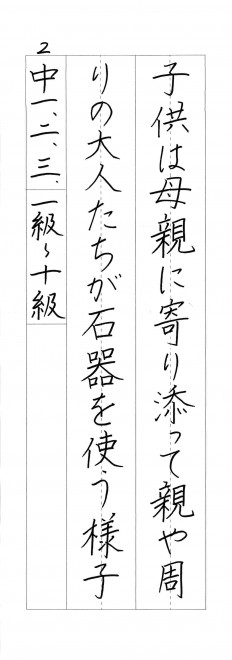 子供は母親に寄り添って親や周
りの大人たちが石器を使う様子
2
中一、二、三、一級〜十級